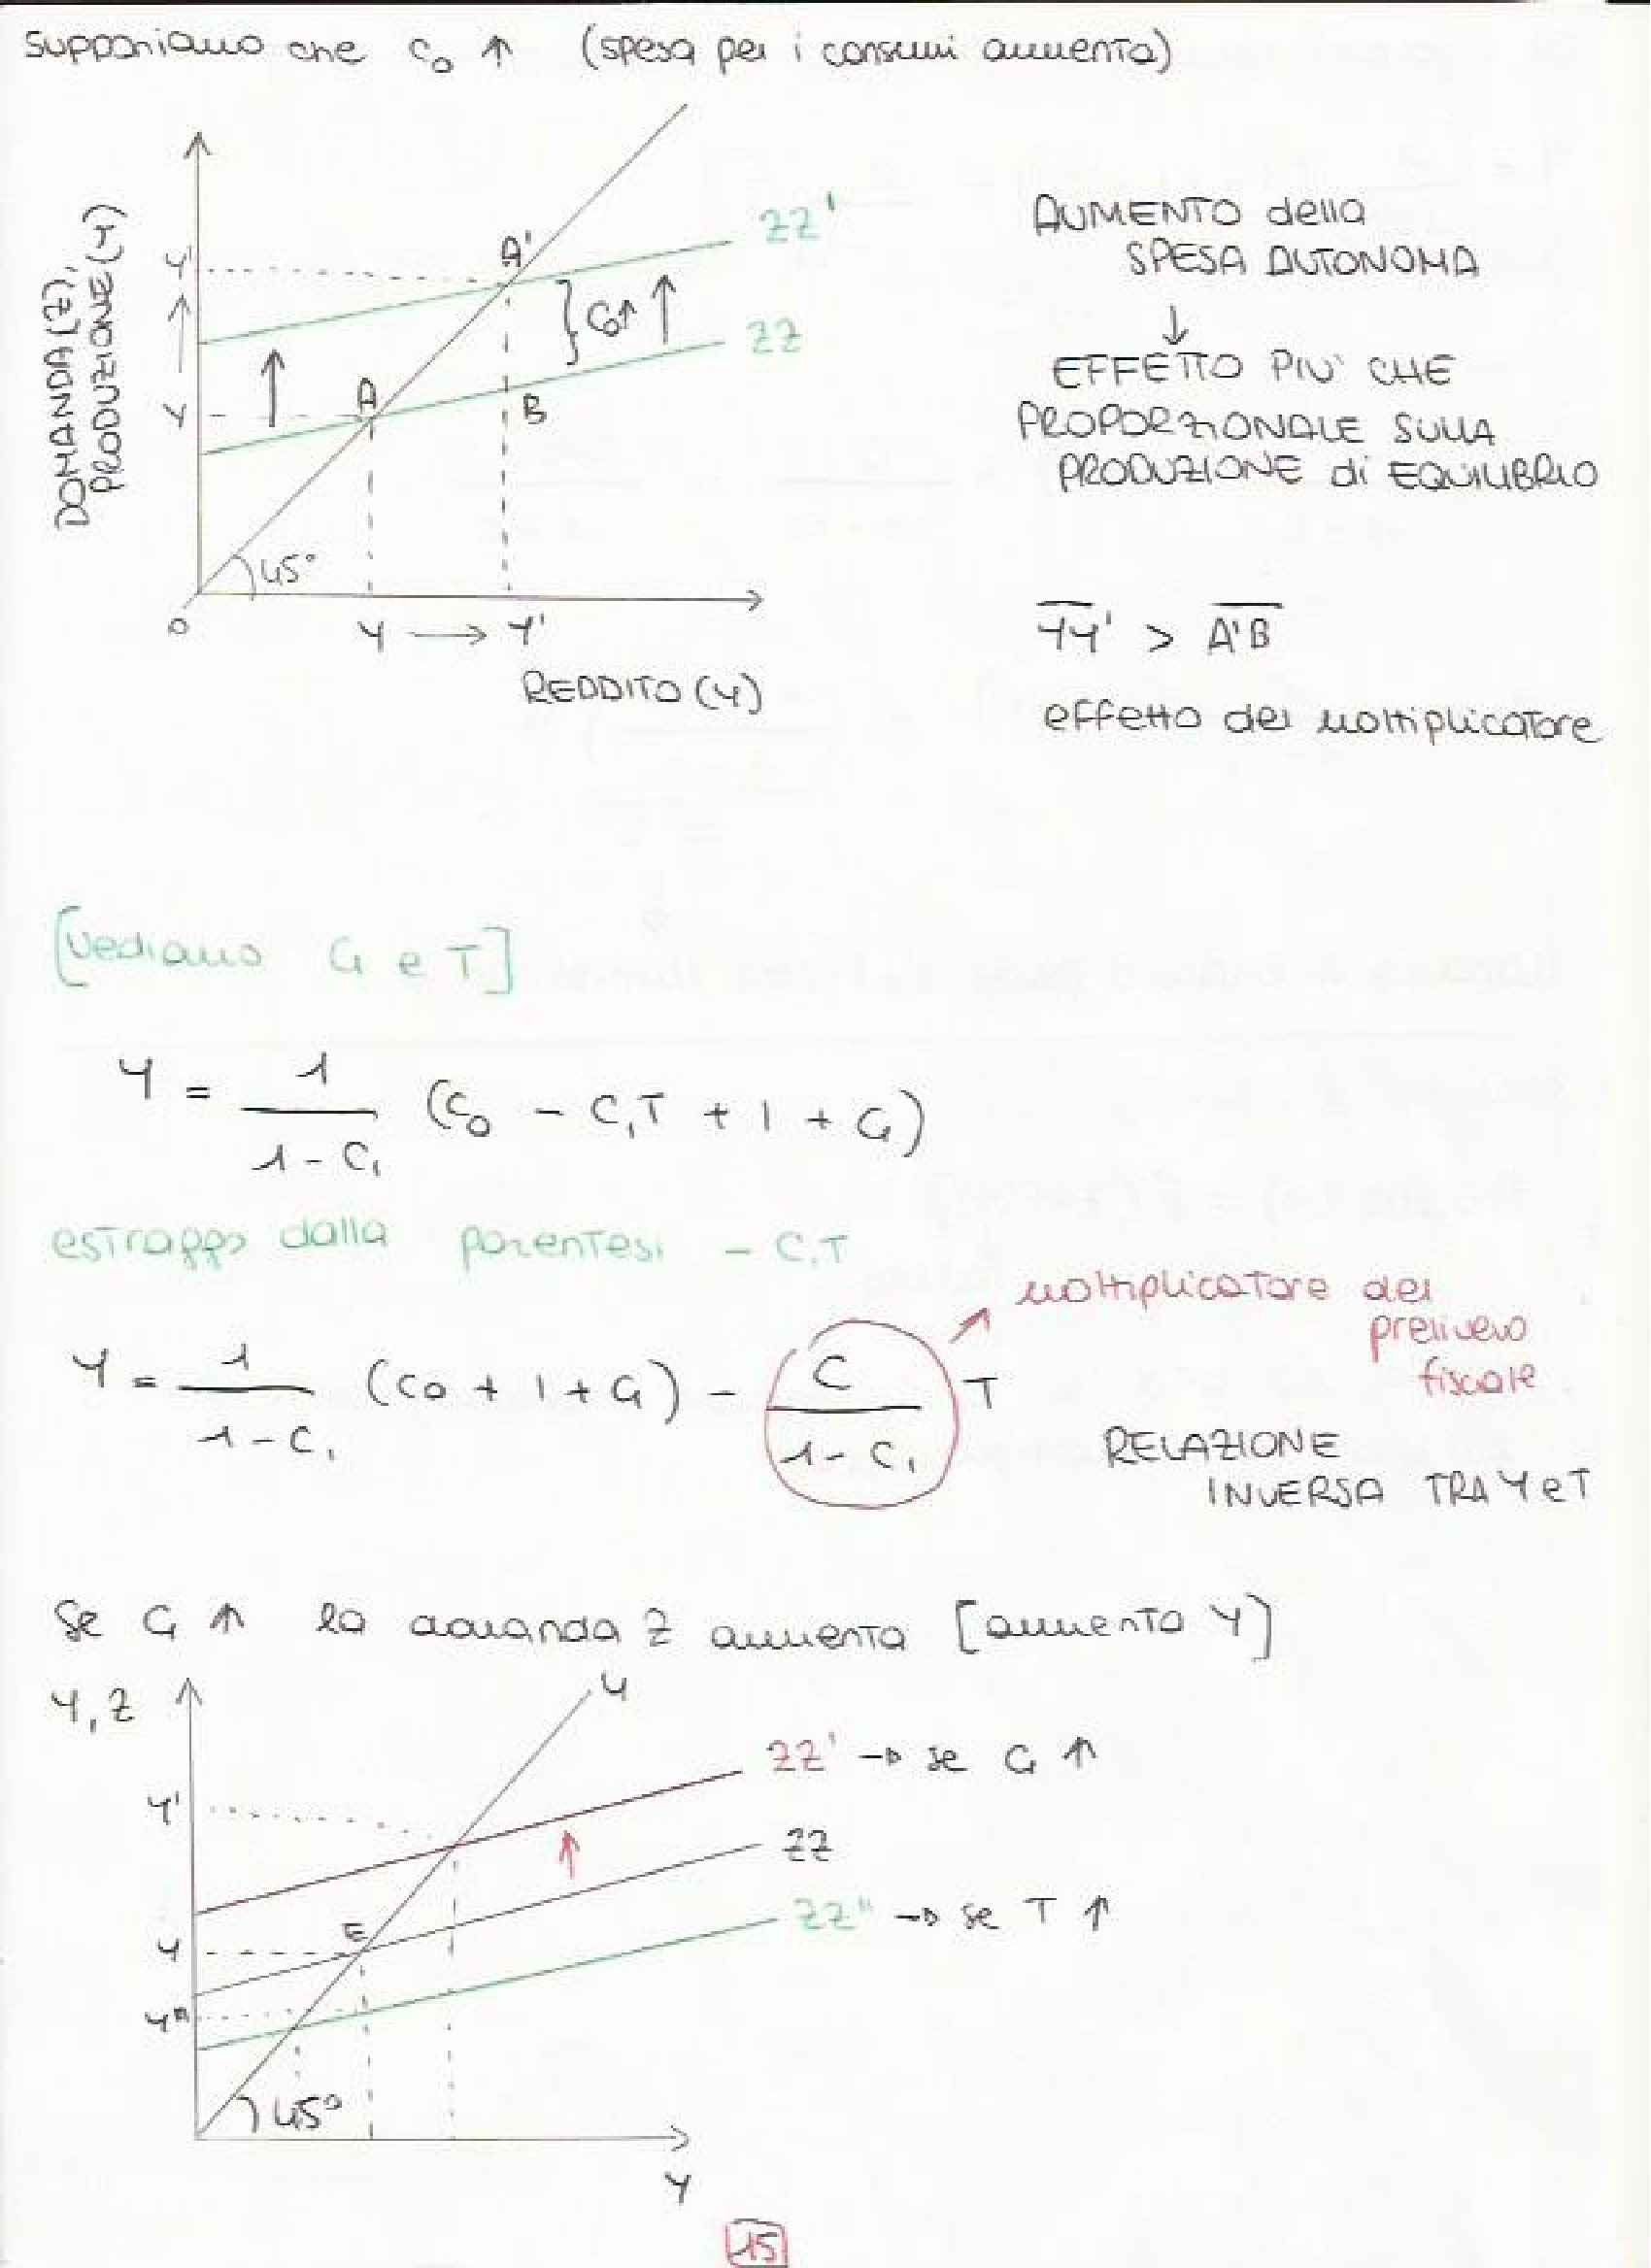 Supponiamo che c₀ ↑ (spesa per i consumi aumenta)
DOMANDA (Z),
PRODUZIONE (Y)
ZZ'
A'
Y'
C₀↑
ZZ
A
Y
B
45°
0
Y → Y'
REDDITO (Y)
AUMENTO della
SPESA AUTONOMA
↓
EFFETTO PIU' CHE
PROPORZIONALE SULLA
PRODUZIONE di EQUILIBRIO
YY' > A'B
effetto del moltiplicatore
[Vediamo G e T]
Y = 1 / (1 - C₁) (C₀ - C₁T + I + G)
estraggo dalla parentesi - C₁T
moltiplicatore del
prelievo
fiscale
Y = 1 / (1 - C₁) (C₀ + I + G) - C / (1 - C₁) T
RELAZIONE
INVERSA TRA Y e T
Se G ↑ la domanda Z aumenta [aumento Y]
Y, Z
Y
ZZ' → se G ↑
Y'
ZZ
ZZ'' → se T ↑
E
Y
Y''
45°
Y
15